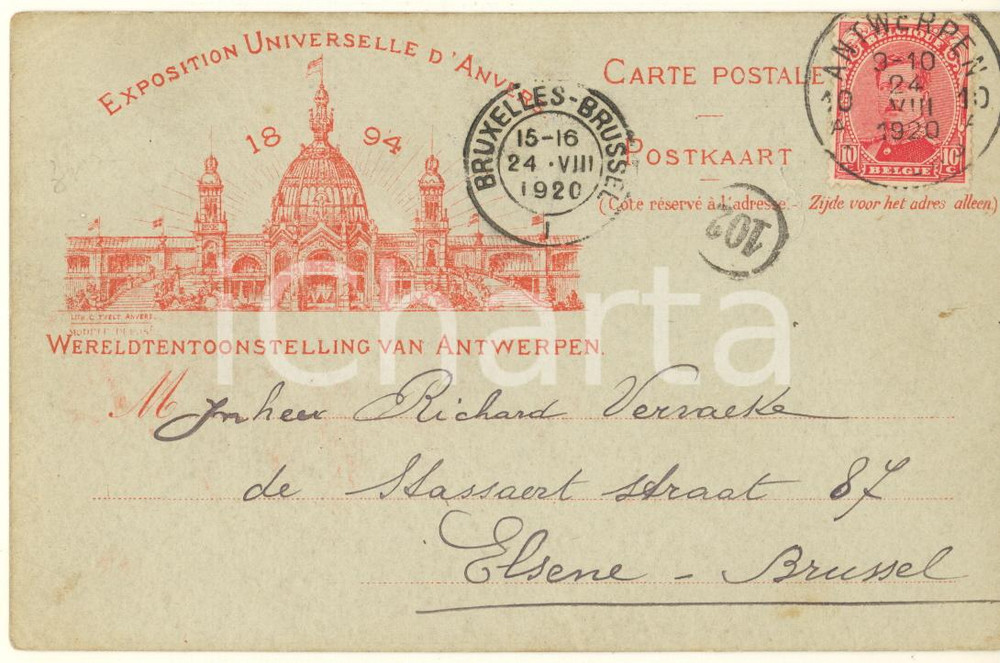 EXPOSITION UNIVERSELLE D'ANVERS
1894
LITH. C. YVELT ANVERS.
MODÈLE DÉPOSÉ
WERELDTENTOONSTELLING VAN ANTWERPEN.
CARTE POSTALE
POSTKAART
(Côte réservé à l'adresse.- Zijde voor het adres alleen)
BELGIQUE
10 c 10 c
BELGIE
ANTWERPEN
9-10
24
VIII
1920
10 10
A A
BRUXELLES-BRUSSEL
15-16
24 · VIII
1920
1
102
iCharta
Mynheer Richard Vervaeke
de Stassaert straat 87
Elsene - Brussel